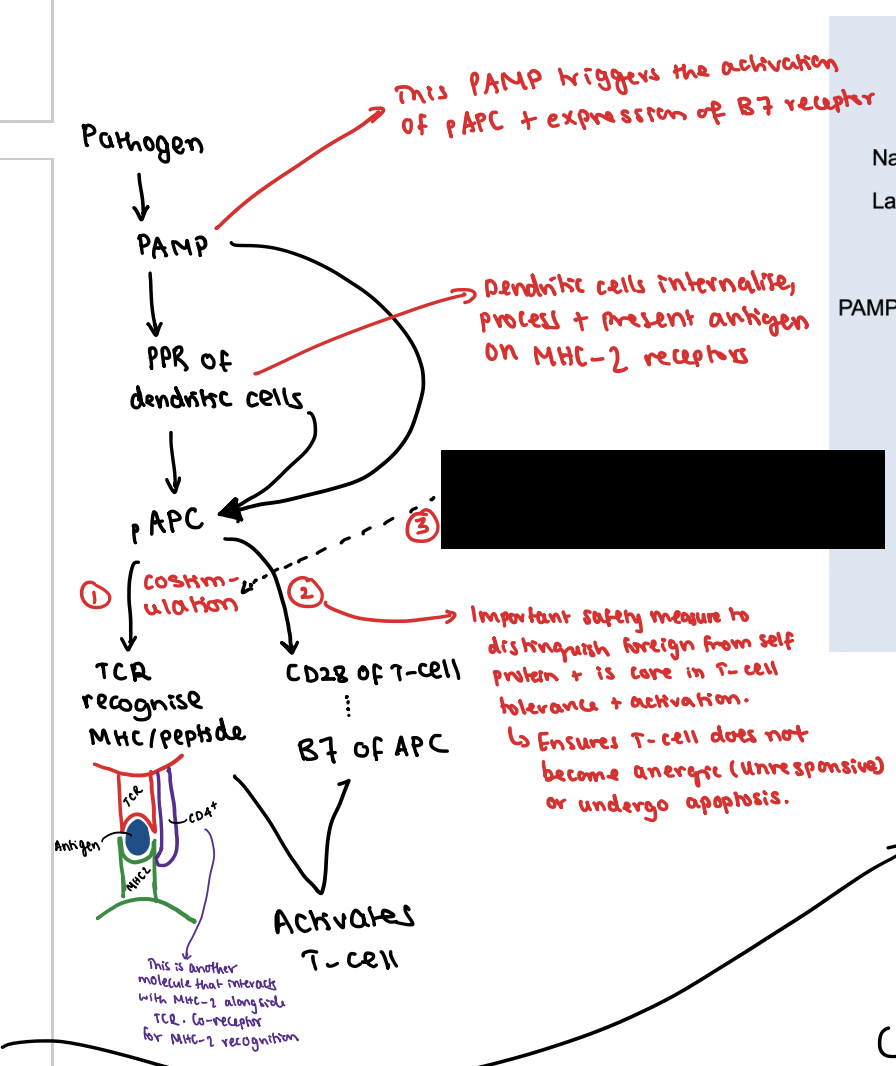 This PAMP triggers the activation
of pAPC + expression of B7 receptor
Pathogen
Na
La
PAMP
PAMP
Dendritic cells internalise,
process + present antigen
on MHC-2 receptors
PPR of
dendritic cells
pAPC
3
1
costim-
ulation
2
Important safety measure to
distinguish foreign from self
protein + is core in T-cell
tolerance + activation.
↳ Ensures T-cell does not
become anergic (unresponsive)
or undergo apoptosis.
TCR
recognise
MHC/peptide
CD28 of T-cell
B7 of APC
TCR
CD4+
Antigen
MHC2
Activates
T-cell
This is another
molecule that interacts
with MHC-2 alongside
TCR. Co-receptor
for MHC-2 recognition
C